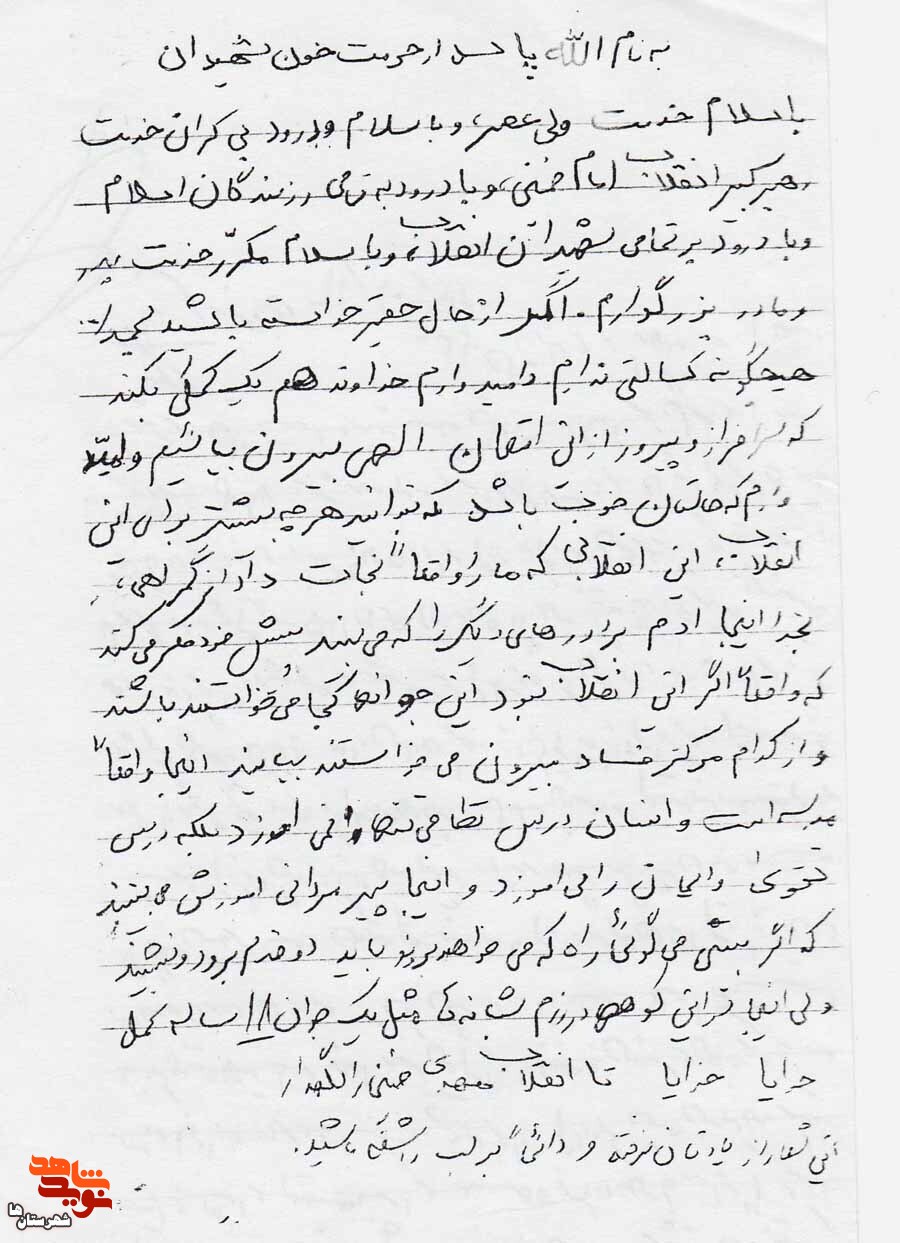 به نام الله پاسدار حرمت خون شهیدان
با سلام خدمت ولی عصر، و با سلام و درود بی کران خدمت
رهبر کبیر انقلاب امام خمینی، و با درود به تمامی رزمندگان اسلام
و با درود بر تمامی شهیدان انقلاب، و با سلام مکرّر خدمت پدر
و مادر بزرگوارم. اگر از حال حقیر خواسته باشید الحمدا...
هیچگونه کسالتی ندارم و امید وارم خداوند هم یک کمکی بکند
که سرافراز و پیروز از این امتحان الهی بیرون بیائیم و امید
وارم که حالتان خوب باشد که توانید هر چه بیشتر برای این
انقلاب، این انقلابی که ما را واقعاً نجات داد از گمراهی،
بخدا اینجا ادم برادرهای دیگر را که می بیند پیش خود فکر می کند
که واقعاً اگر این انقلاب نبود این جوانها کجا می خواستند باشند
و از کدام مرکز فساد بیرون می خواستند بیایند اینجا واقعاً
مدرسه است و انسان درس نظامی تنها نمی اموزد بلکه درس
تقوی و ایمان را می اموزد و اینجا پیر مردانی اموزش می بینند
که اگر ببینی می گوئی راه که می خواهد برود باید دو قدم برود و بنشیند
ولی اینجا در این کوه در رزم شبانه مثل یک جوان 18 ساله عمل
خدایا خدایا تا انقلاب مهدی خمینی را نگهدار
این شعار از یادتان نرفته و دائماً بر لب داشته باشید.
نوید شاهد
شهرستان ها